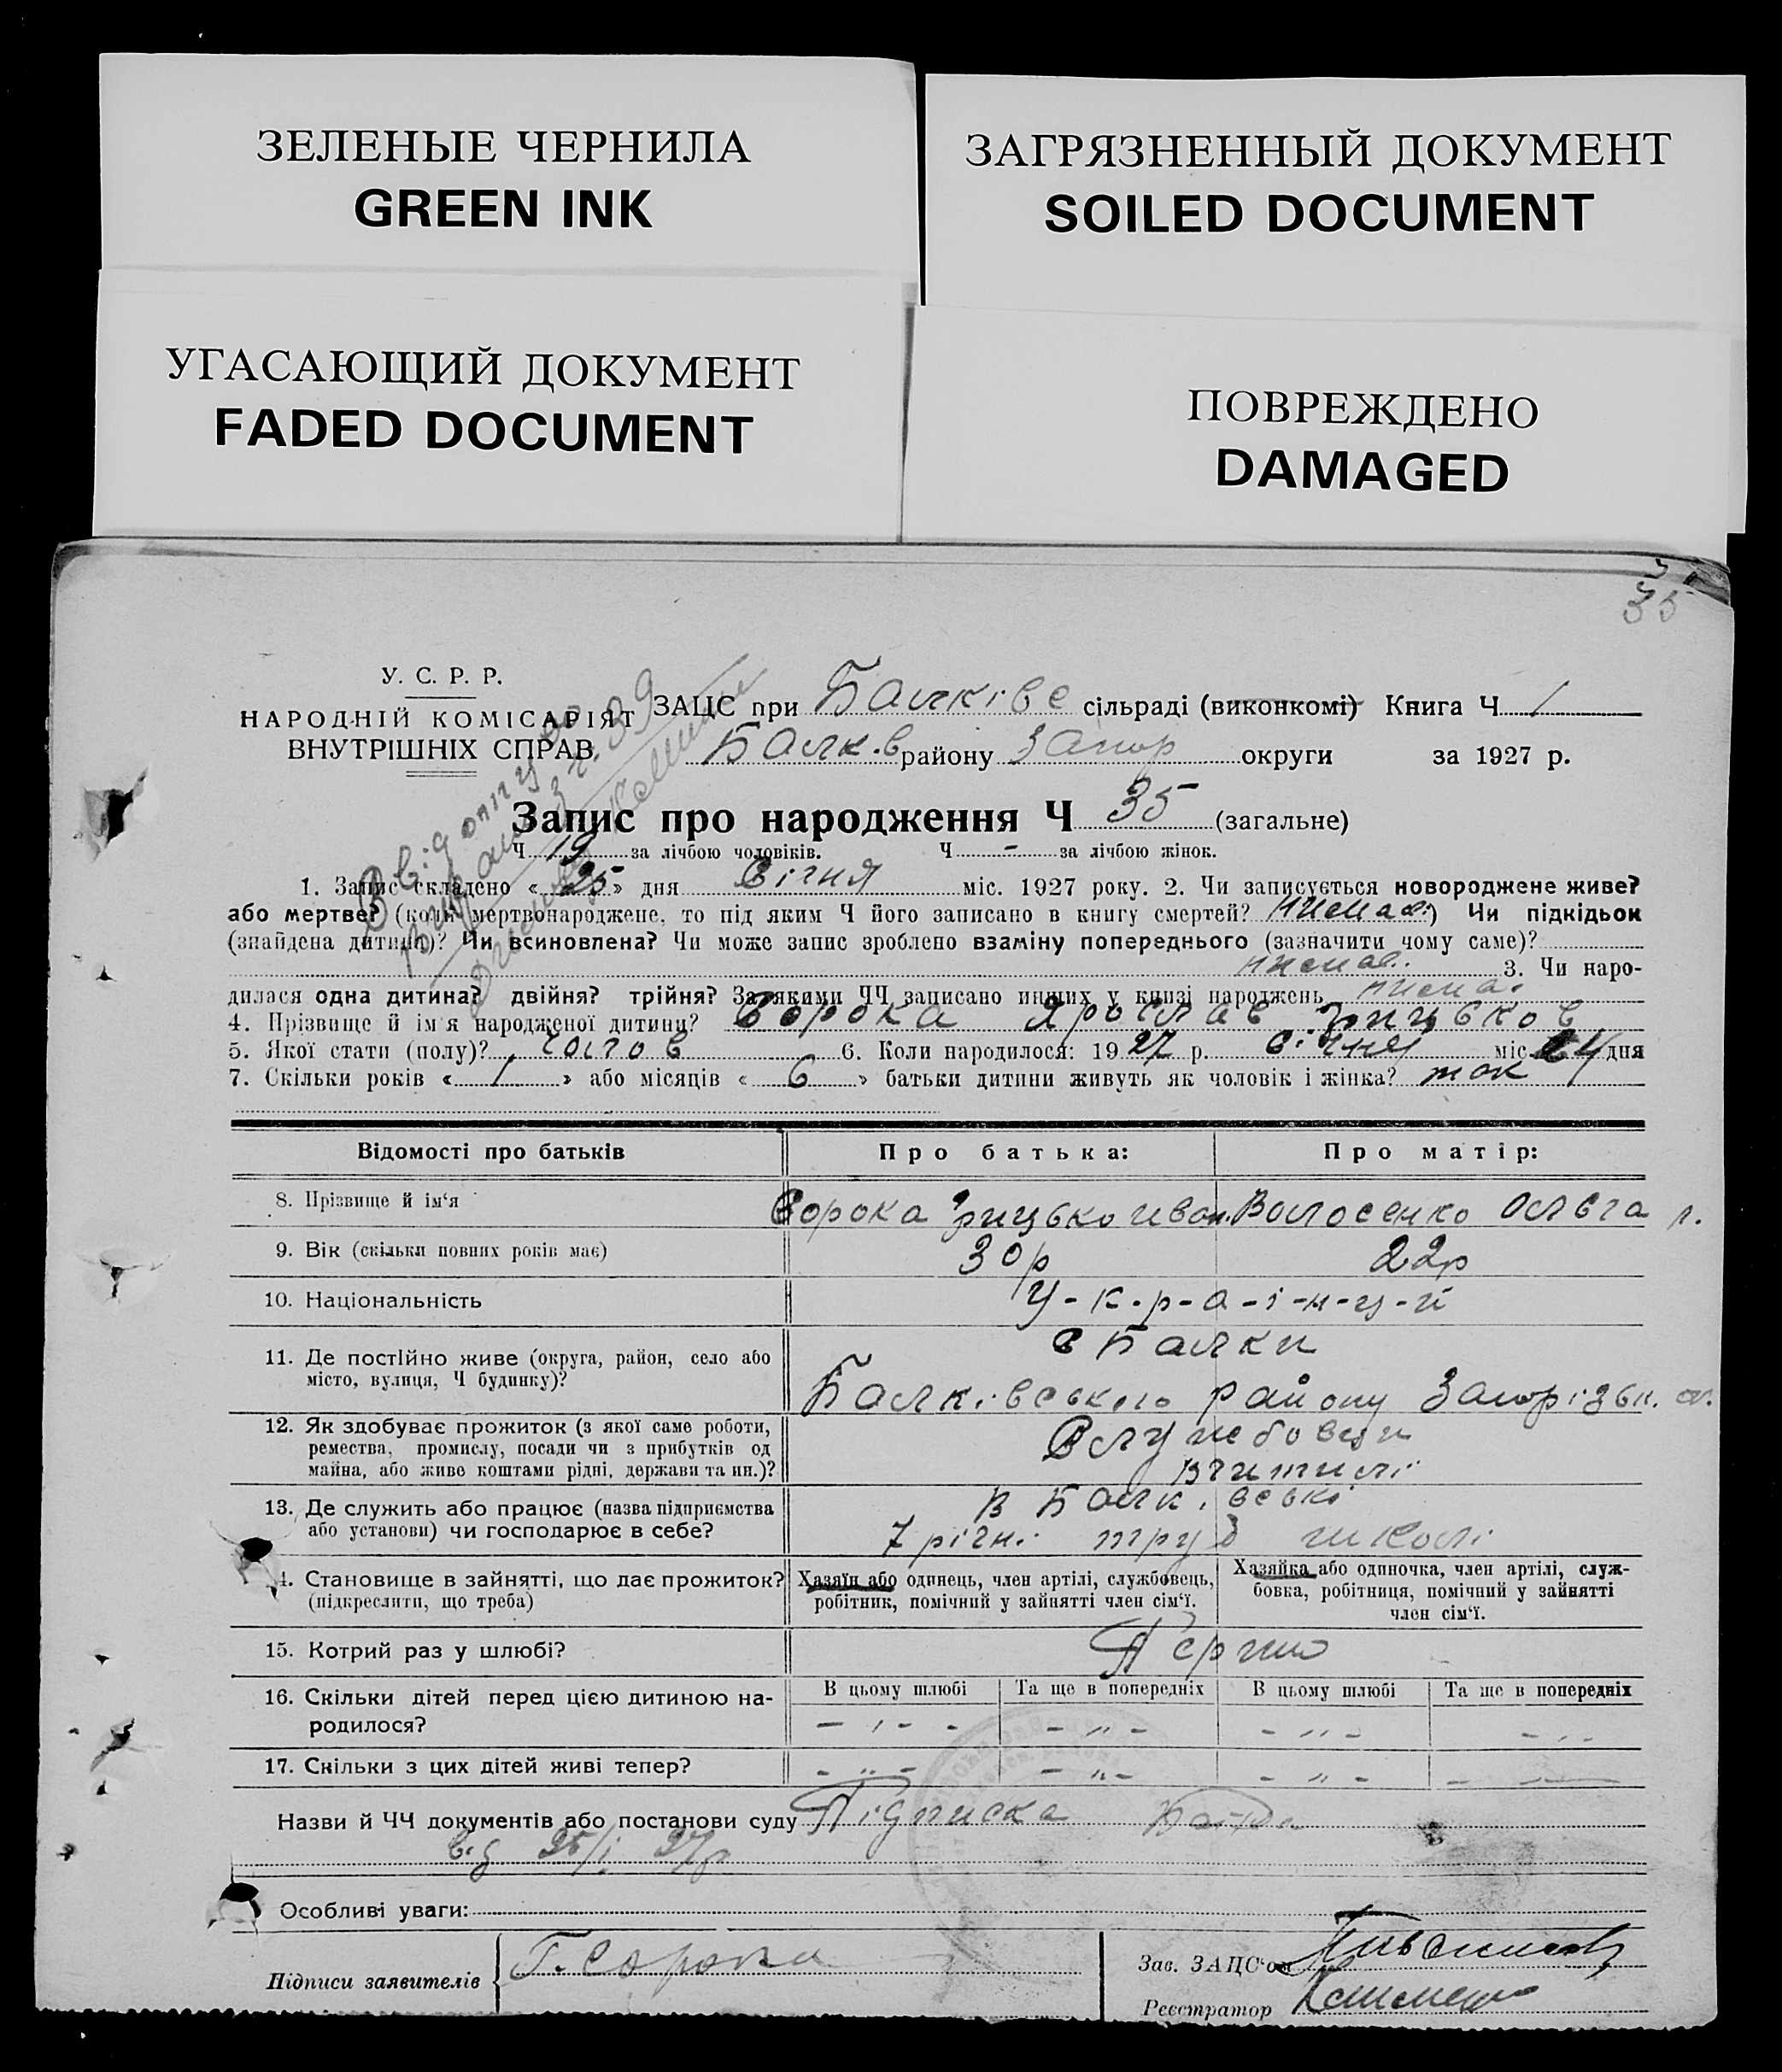 ЗЕЛЕНЫЕ ЧЕРНИЛА
GREEN INK
ЗАГРЯЗНЕННЫЙ ДОКУМЕНТ
SOILED DOCUMENT
УГАСАЮЩИЙ ДОКУМЕНТ
FADED DOCUMENT
ПОВРЕЖДЕНО
DAMAGED
35
У. С. Р. Р.
НАРОДНІЙ КОМІСАРІЯТ
ВНУТРІШНІХ СПРАВ
ЗАЦС при Балківс сільраді (виконкомі) Книга Ч 1
Балк.в району Запор округи за 1927 р.
Запис про народження Ч 35 (загальне)
Ч 19 за лічбою чоловіків. Ч - за лічбою жінок.
1. Запис складено «25» дня Січня міс. 1927 року. 2. Чи записується новороджене живе?
або мертве? (коли мертвонароджене, то під яким Ч його записано в книгу смертей? ) Чи підкідьок
(знайдена дитина)? Чи всиновлена? Чи може запис зроблено взаміну попереднього (зазначити чому саме)?
3. Чи наро-
дилася одна дитина? двійня? трійня? За якими ЧЧ записано инших у книзі народжень нема.
4. Прізвище й ім'я народженої дитини? Сорока Ярослав Грицьков
5. Якої стати (полу)? Чолов 6. Коли народилося: 1927 р. Січня міс 24 дня
7. Скільки років « 1 » або місяців « 6 » батьки дитини живуть як чоловік і жінка? так
Відомості про батьків
Про батька:
Про матір:
8. Прізвище й ім'я
Сорока Грицько Иван. Волосенко Ольга г.
9. Вік (скільки повних років має)
30р 22р
10. Національність
У-к-р-а-ї-н-ц-й
11. Де постійно живе (округа, район, село або
місто, вулиця, Ч будинку)?
с Балки
Балківського району Запорізьк. ок.
12. Як здобуває прожиток (з якої саме роботи,
ремества, промислу, посади чи з прибутків од
майна, або живе коштами рідні, держави та ин.)?
Службовци
Вчителі
13. Де служить або працює (назва підприємства
або установи) чи господарює в себе?
В Балківські
7 річні труд школі
4. Становище в зайнятті, що дає прожиток?
(підкреслити, що треба)
Хазяїн або одинець, член артілі, службовець,
робітник, помічний у зайнятті член сім'ї.
Хазяйка або одиночка, член артілі, служ-
бовка, робітниця, помічний у зайнятті
член сім'ї.
15. Котрий раз у шлюбі?
Перший
16. Скільки дітей перед цією дитиною на-
родилося?
В цьому шлюбі
Та ще в попередніх
В цьому шлюбі
Та ще в попередніх
- " -
- " -
- " -
17. Скільки з цих дітей живі тепер?
- " -
- " -
- " -
Назви й ЧЧ документів або постанови суду Підписка
від 25/I 27р
Особливі уваги:
Підписи заявителів Г. Сорока
Зав. ЗАЦС'ом
Реєстратор